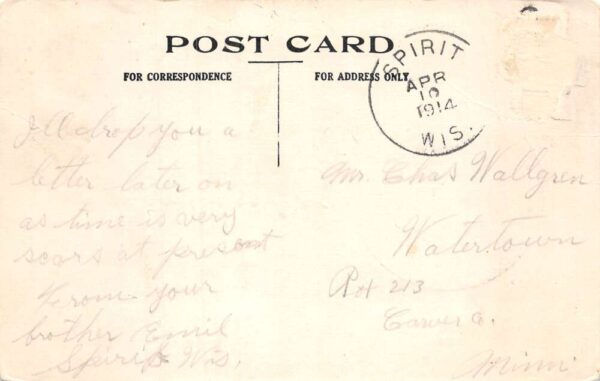 POST CARD
FOR CORRESPONDENCE
FOR ADDRESS ONLY
SPIRIT
APR
10
1914
WIS.
I'll drop you a
letter later on
as time is very
scars at present
From your
brother Emil
Spirit Wis.
Mr. Chas Wallgren
Watertown
213
Carver Co.
Minn